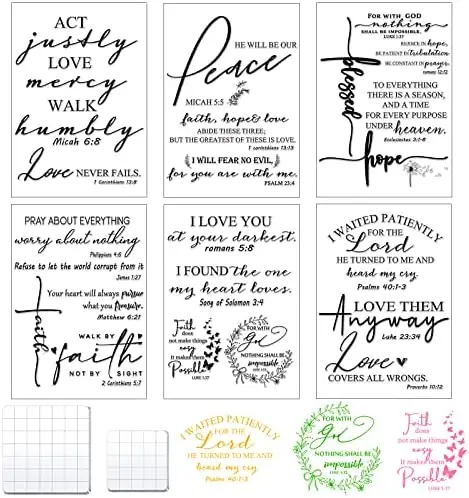 ACT
justly
LOVE
mercy
WALK
humbly
Micah 6:8
Love NEVER FAILS.
1 Corinthians 13:8
HE WILL BE OUR
Peace
MICAH 5:5
faith, hope & love
ABIDE THESE THREE;
BUT THE GREATEST OF THESE IS LOVE.
1 Corinthians 13:13
I WILL FEAR NO EVIL,
for you are with me.
PSALM 23:4
FOR WITH GOD
nothing
SHALL BE IMPOSSIBLE.
LUKE 1:37
REJOICE IN hope,
BE PATIENT IN tribulation
BE CONSTANT IN prayer.
romans 12:12
blessed
TO EVERYTHING
THERE IS A SEASON,
AND A TIME
FOR EVERY PURPOSE
UNDER heaven.
Ecclesiastes 3:1-8
hope
PRAY ABOUT EVERYTHING
worry about nothing
Philippians 4:6
Refuse to let the world corrupt from it
James 1:27
Your heart will always pursue
what you treasure.
Matthew 6:21
faith
WALK BY
faith
NOT BY SIGHT
2 Corinthians 5:7
I LOVE YOU
at your darkest.
romans 5:8
I FOUND the one
my heart loves.
Song of Solomon 3:4
Faith
does
not make things
easy
it makes them
Possible
LUKE 1:37
FOR WITH
God
NOTHING SHALL BE
impossible
LUKE 1:37
I WAITED PATIENTLY
FOR THE
Lord
HE TURNED TO ME AND
heard my cry.
Psalms 40:1-3
LOVE THEM
Anyway
Luke 23:34
Love
COVERS ALL WRONGS.
Proverbs 10:12
I WAITED PATIENTLY
FOR THE
Lord
HE TURNED TO ME AND
heard my cry
Psalms 40:1-3
FOR WITH
God
NOTHING SHALL BE
impossible
LUKE 1:37
Faith
does
not make things
easy
it makes them
Possible
LUKE 1:37